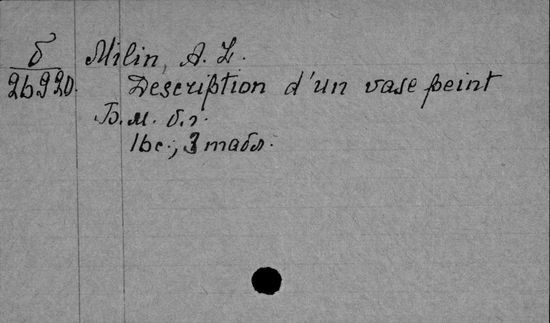 б Milin, A. L.
26920. Description d'un vase peint
Б. м. б. г.
16 с., 3 табл.